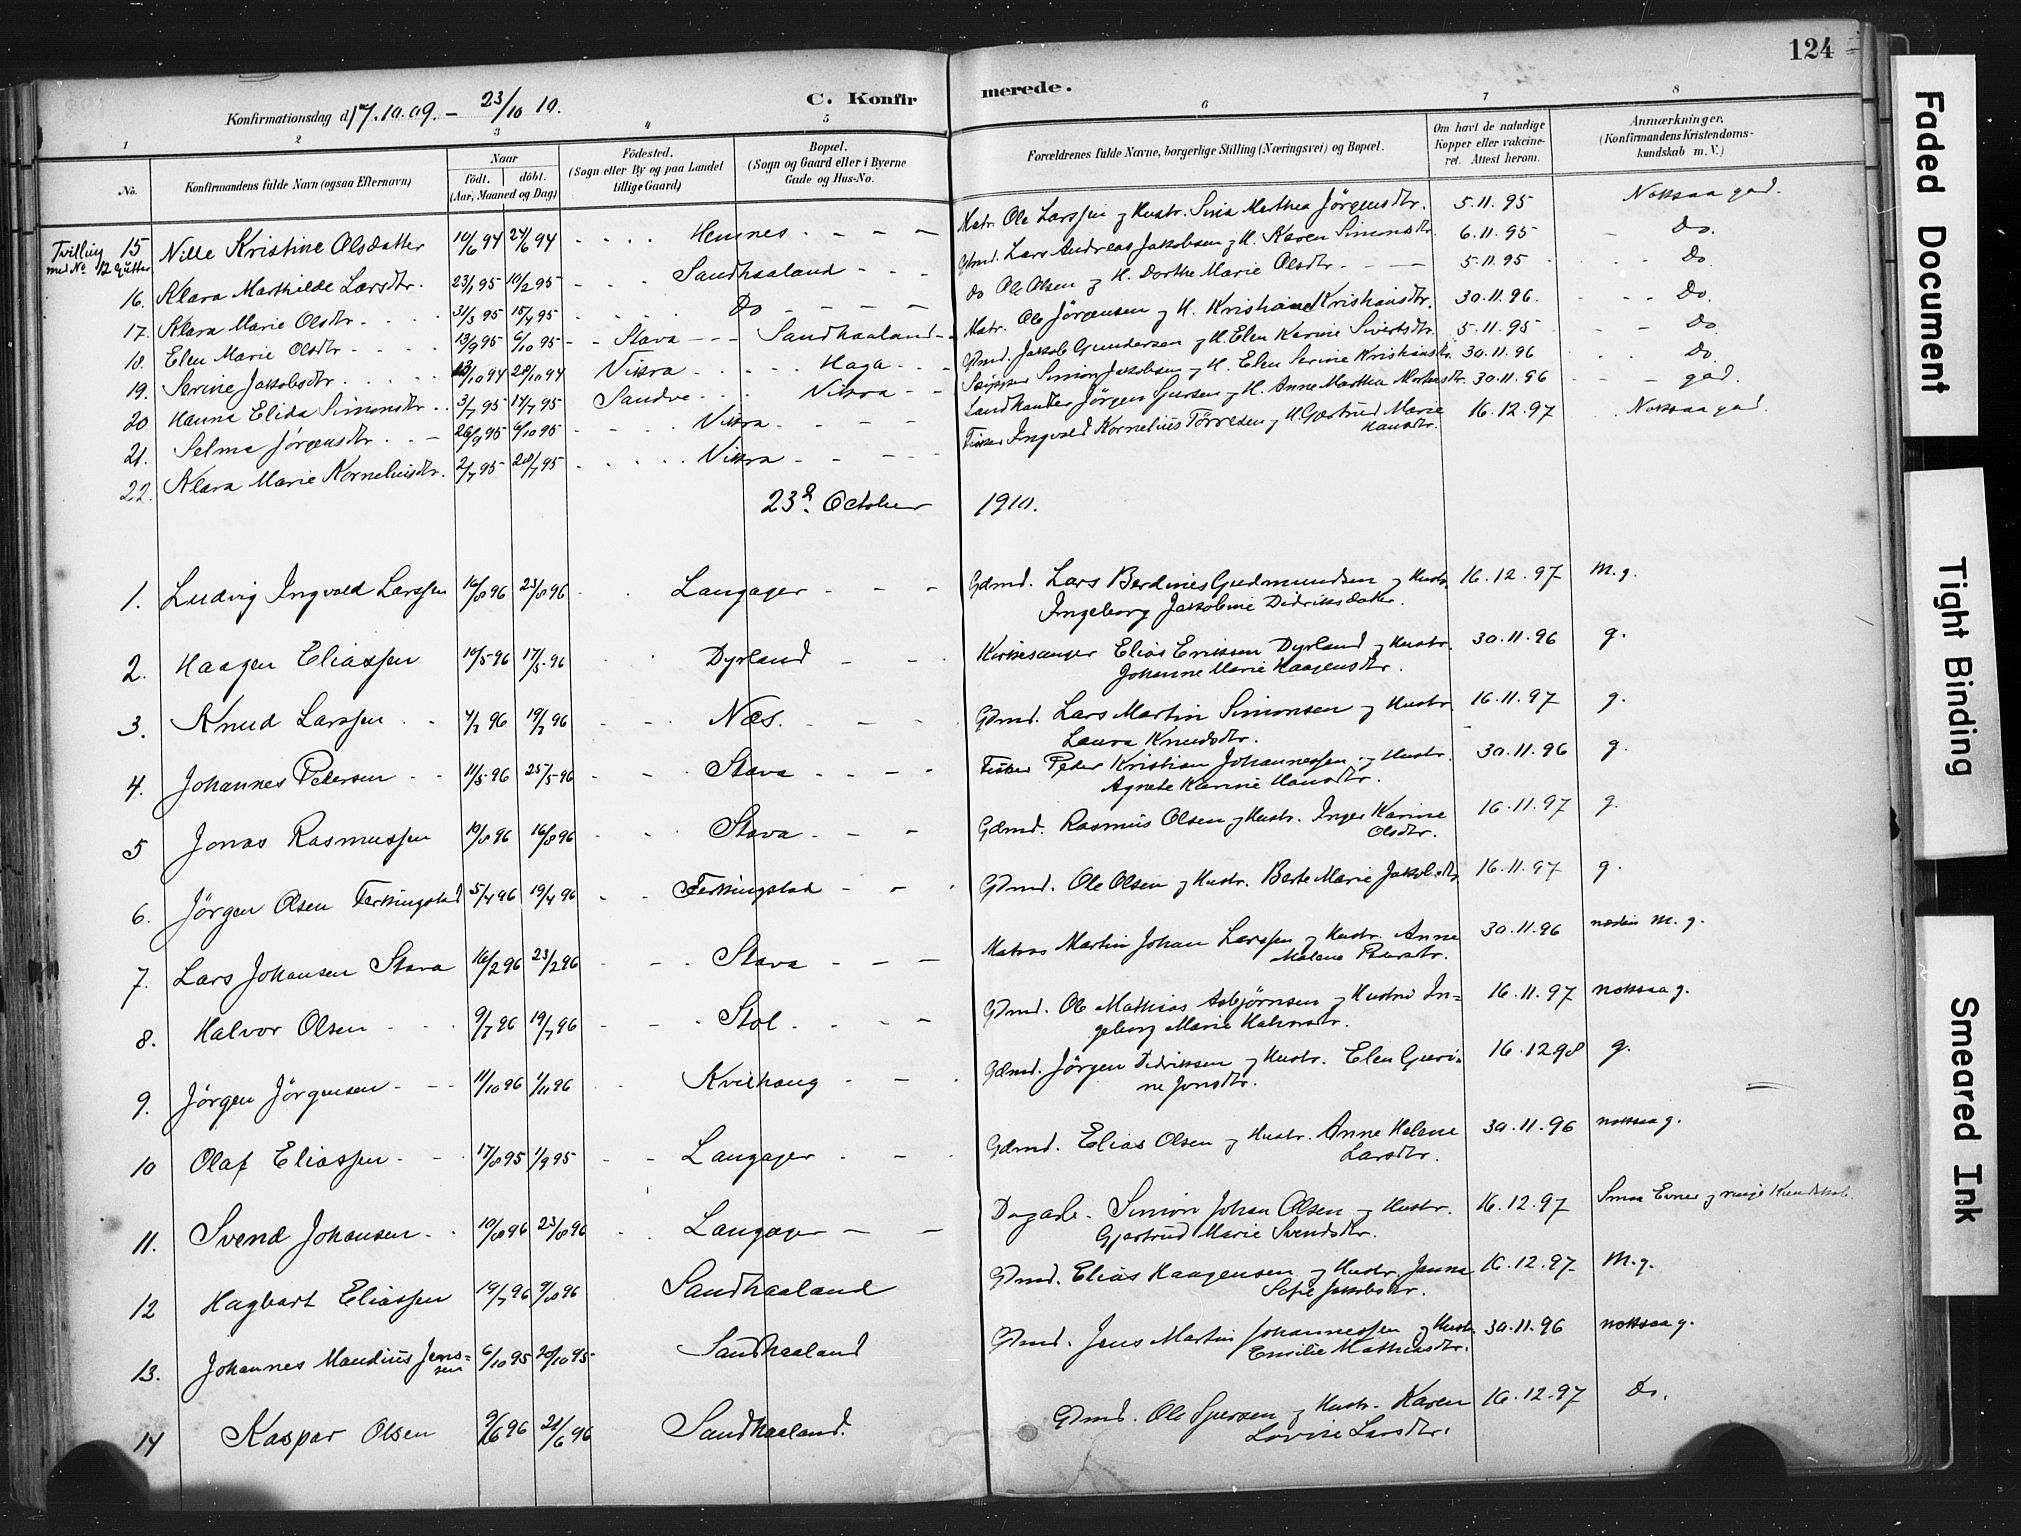 124
C. Konfirmerede.
Konfirmationsdag d 17.10.09. – 23/10 10.
1 2 3 4 5 6 7 8
No.
Konfirmandens fulde Navn (ogsaa Efternavn)
Naar
födt. döbt.
(Aar, Maaned og Dag)
Födested.
(Sogn eller By og paa Landet
tillige Gaard)
Bopæl.
(Sogn og Gaard eller i Byerne
Gade og Hus-No.
Forældrenes fulde Navne, borgerlige Stilling (Næringsvei) og Bopæl.
Om havt de naturlige
Kopper eller vakcine-
ret. Attest herom.
Anmærkninger.
(Konfirmandens Kristendoms-
kundskab m. V.)
Tvilling med No 12 Gutter 15 Nille Kristine Olsdatter 10/6 94 24/6 94 Hemnes Matr. Ole Larssen og Hustr. Sina Marthea Jörgensdtr. 5.11.95 Noksaa god.
16. Klara Marthilde Larsdtr. 23/1 95 10/2 95 Sandhaaland Gbmd. Lars Andreas Jakobsen og H. Karen Simonsdtr. 6.11.95 Do.
17. Klara Marie Olsdtr. 31/3 95 15/4 95 Do Do Ole Olsen og H. Dorthe Marie Olsdtr. 5.11.95 Do
18. Elen Marie Olsdtr 13/9 95 6/10 95 Stava Sandhaaland Matr. Ole Jörgensen og H. Kristiane Kristiansdtr. 30.11.96. Do.
19. Serine Jakobsdtr. 10/94 28/10 94 Vikra Haga Gdmd. Jakob Gundersen og H. Elen Karine Sivertsdtr. 5.11.95 Do
20 Hanna Elida Simonsdtr. 3/7 95 14/7 95 Sandve Vikra Skipper Simon Jakobsen og H. Elen Serine Kristiansdtr. 30.11.96 Do
21. Selma Jörgensdtr. 26/9 95 6/10 95 Vikra Landhandler Jörgen Sjursen og H. Anne Marthea Mortensdtr. 30.11.96 god.
22. Klara Marie Korneliusdtr. 2/7 95 28/7 95 Vikra Fisker Ingvald Kornelius Törresen og H. Gjertrud Marie Hansdtr. 16.12.97 Noksaa god.
23d October 1910.
1. Ludvig Ingvald Larssen 16/8 96 23/8 96 Langager Gdmd. Lars Berdines Gudmundsen og Hustr. 16.12.97 M. g.
Ingeborg Jakobine Didriksdatter.
2. Haagen Eliassen 10/5 96 17/5 96 Dyrland Kirkesanger Elias Eriksen Dyrland og Hustr. 30.11.96 g.
Johanne Marie Haagensdtr.
3. Knud Larssen 4/7 96 19/7 96 Næs. Gdmd. Lars Martin Simonsen og Hustr. 16.11.97 g.
Laura Knudsdtr.
4. Johannes Petersen 11/5 96 25/5 96 Stava Fisker Peder Kristian Johannessen og Hustr. 30.11.96 g.
Agnete Karine Hansdtr.
5 Jonas Rasmussen 10/8 96 16/8 96 Stava Gdmd. Rasmus Olsen og Hustr. Inger Karine 16.11.97 g.
Olsdtr.
6. Jörgen Olsen Ferkingstad 5/4 96 19/4 96 Ferkingstad Gdmd. Ole Olsen og Hustr. Berte Marie Jakobsdtr 16.11.97 g.
7. Lars Johansen Stava 16/2 96 23/2 96 Stava Matros Martin Johan Larssen og Hustr. Anne 30.11.96 næsten M. g.
Malene Pedersdtr.
8. Halvor Olsen 9/7 96 19/7 96 Stol Gdmd. Ole Mathias Asbjörnsen og Hustru In= 16.11.97 noksaa g.
geborg Marie Halvorsdtr.
9. Jörgen Jörgensen 11/10 96 1/11 96 Kvilhaug Gdmd. Jörgen Didriksen og Hustr. Elen Guri= 16.12 98 g.
ne Jonsdtr.
10 Olaf Eliassen 17/8 95 1/9 95 Langager Gdmd. Elias Olsen og Hustr. Anne Helene 30.11.96 noksaa g.
Larsdtr.
11. Svend Johansen 10/8 96 23/8 96 Langager Dagarb. Simon Johan Olsen og Hustr. 16.12.97 Smaa Evner og ringe Kundskab.
Gjertrud Marie Svendsdtr.
12 Hagbart Eliassen 19/7 96 9/8 96 Sandhaaland Gdmd. Elias Haagensen og Hustr. Janna 16.12.97 M. g.
Sofie Jakobsdtr.
13. Johannes Mandius Jens=sen 6/10 95 20/10 95 Sandhaaland Gdmd. Jens Martin Johannessen og Hustr. 30.11.96 noksaa g.
Emilie Mathiasdtr.
14 Kaspar Olsen 9/6 96 21/6 96 Sandhaaland. Gdmd. Ole Sjursen og Hustr. Karen 16.12.97 Do.
Lovise Larsdtr.
Faded Document
Tight Binding
Smeared Ink